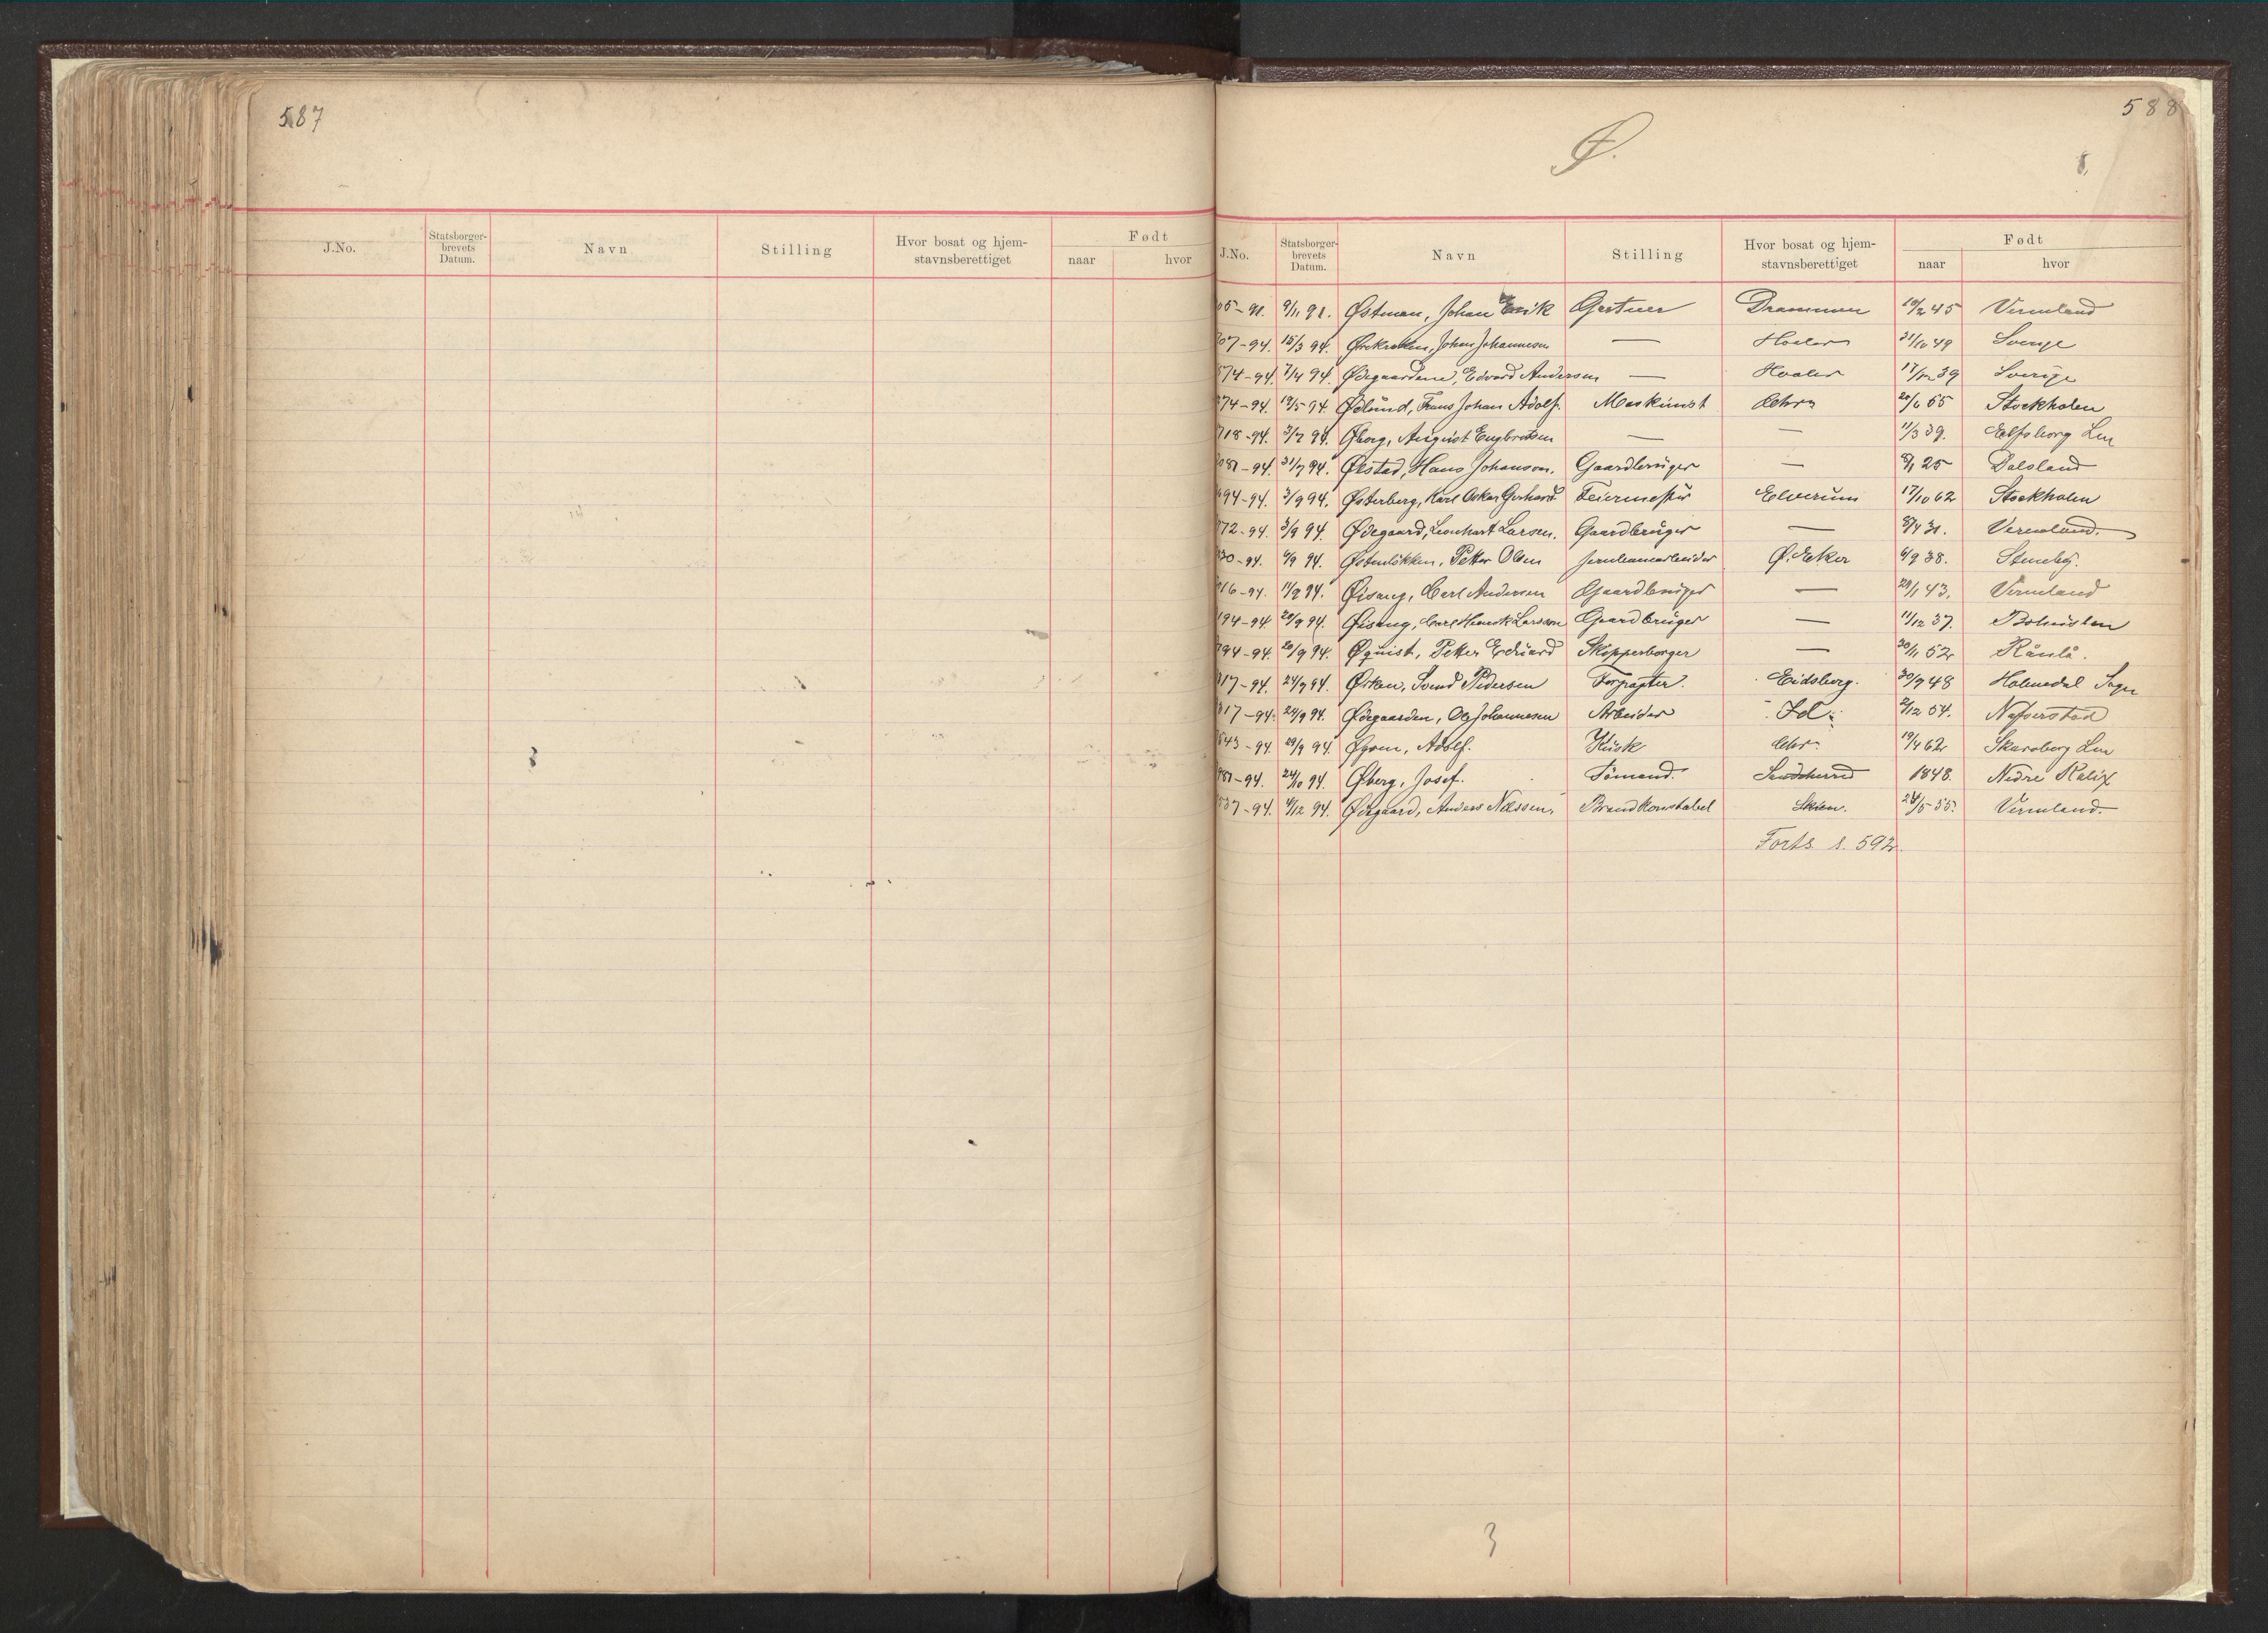 587
J.No. Statsborger-brevets Datum. Navn Stilling Hvor bosat og hjem-stavnsberettiget Født naar hvor
588
Ø.
8,
J.No. Statsborger-brevets Datum. Navn Stilling Hvor bosat og hjem-stavnsberettiget Født naar hvor
05-91. 9/11 91. Østman, Johan Erik Gartner Drammen 10/2 45 Vermland
07-94. 15/3 94. Johan Johannesen — Hvaler 31/10 49 Sverige
74-94. 7/4 94. Ødegaardene, Edvard Andersen — Hvaler 17/12 39 Sverige
74-94. 19/5 94. Ødlund, Frans Johan Adolf. Maskinist Chra 20/6 65 Stockholm
718-94. 3/7 94. Øberg, August Engbretsen — — 11/3 39. Elfsborg Len
081-94. 31/7 94. Økstad, Hans Johanson. Gaardbruger — 25 Dalsland
694-94. 3/9 94. Østerberg, Karl Oskar Gerhard Feiermester Elverum 17/10 62 Stockholm
72-94. 3/9 94. Ødegaard, Leonhart Larsen. Gaardbruger — 8/4 31. Vermland.
30-94. 6/9 94. Østenløkken, Petter Olsen Jernbanearbeider Ø. Eker 6/9 38. Steneby.
16-94. 11/9 94. Øisang, Carl Andersen Gaardbruger — 29/1 43. Vermland
194-94 20/9 94. Øisang, Carl Henrik Larsson Gaardbruger — 11/12 37. Bohuslen
794-94. 20/9 94. Øquist, Peter Eduard Skipperborger — 30/11 52 Råneå.
817-94. 24/9 94. Ørken, Svend Pedersen Forpagter. Eidsberg. 30/9 48 Holmedal Sogn
317-94. 24/9 94. Ødegaarden, Ole Johannesen Arbeider Id. 2/12 54. Nafverstad
643-94. 29/9 94. Øgren, Adolf. Kusk Chr. 19/4 62 Skaraborg Len
981-94. 24/10 94. Øberg, Josef. Sömand. Sandeherred 1848. Nedre Kalix
537-94. 4/12 94. Ødegaard, Anders Nilssen, Brandkonstabel Skien. 28/5 55. Vermland.
Forts. s. 592
3